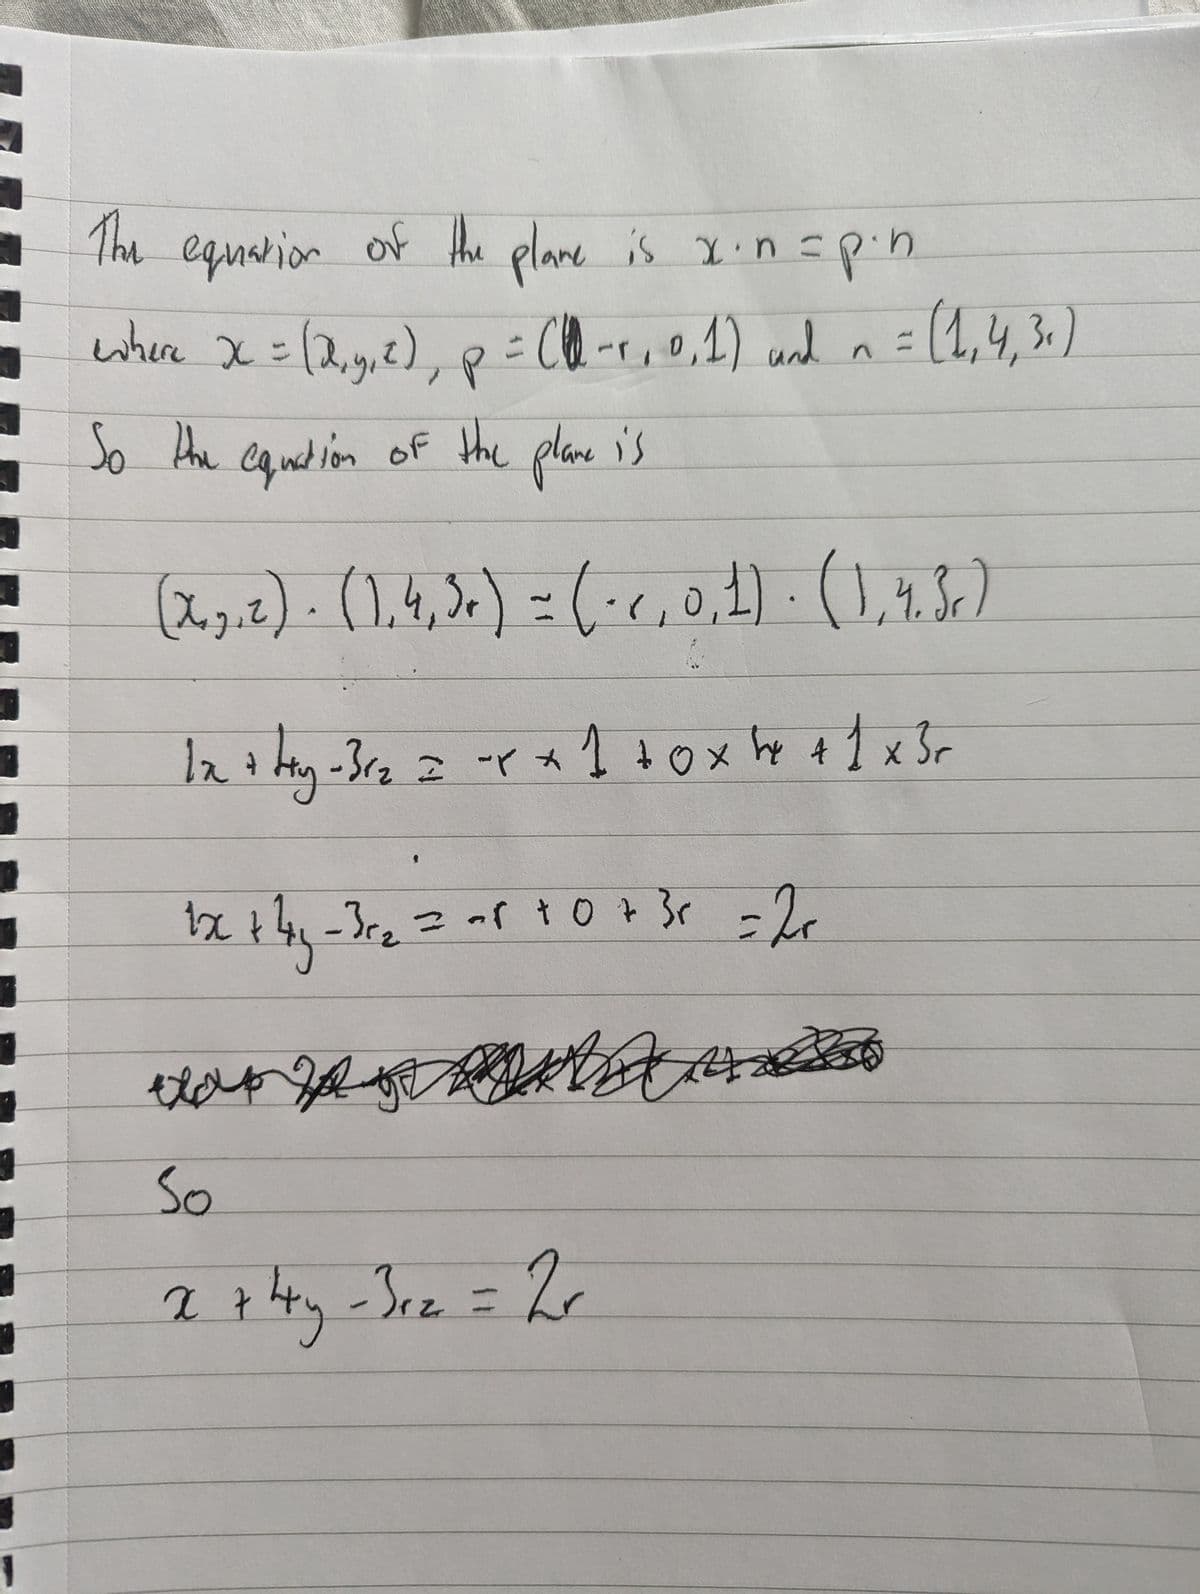 The equation of the plane is x·n = p·n
where x = (x,y,z), p = (-r, 0, 1) and n = (1, 4, 3r)
So the equation of the plane is
(x,y,z) · (1,4,3r) = (-r, 0, 1) · (1, 4, 3r)
1x + 4y - 3rz = -r × 1 + 0 × 4 + 1 × 3r
1x + 4y - 3rz = -r + 0 + 3r = 2r
So
x + 4y - 3rz = 2r